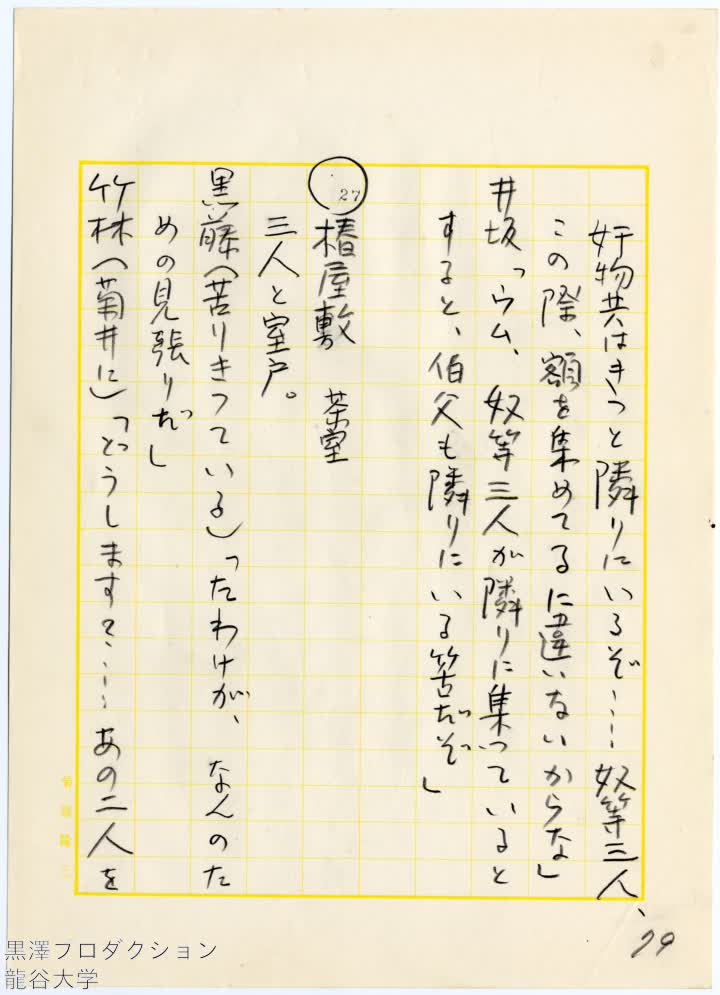 奸物共はきっと隣りにいるぞ……奴等三人、
この際、額を集めてるに違いないからな」
井坂「ウム、奴等三人が隣りに集っていると
すると、伯父も隣りにいる筈だぞ」
27
椿屋敷　茶室
三人と室戸。
黒藤（苦りきつている）「たわけが、なんのた
めの見張りだ」
竹林（菊井に）「どうします？……あの二人を
79
菊島隆三
黒澤プロダクション
龍谷大学